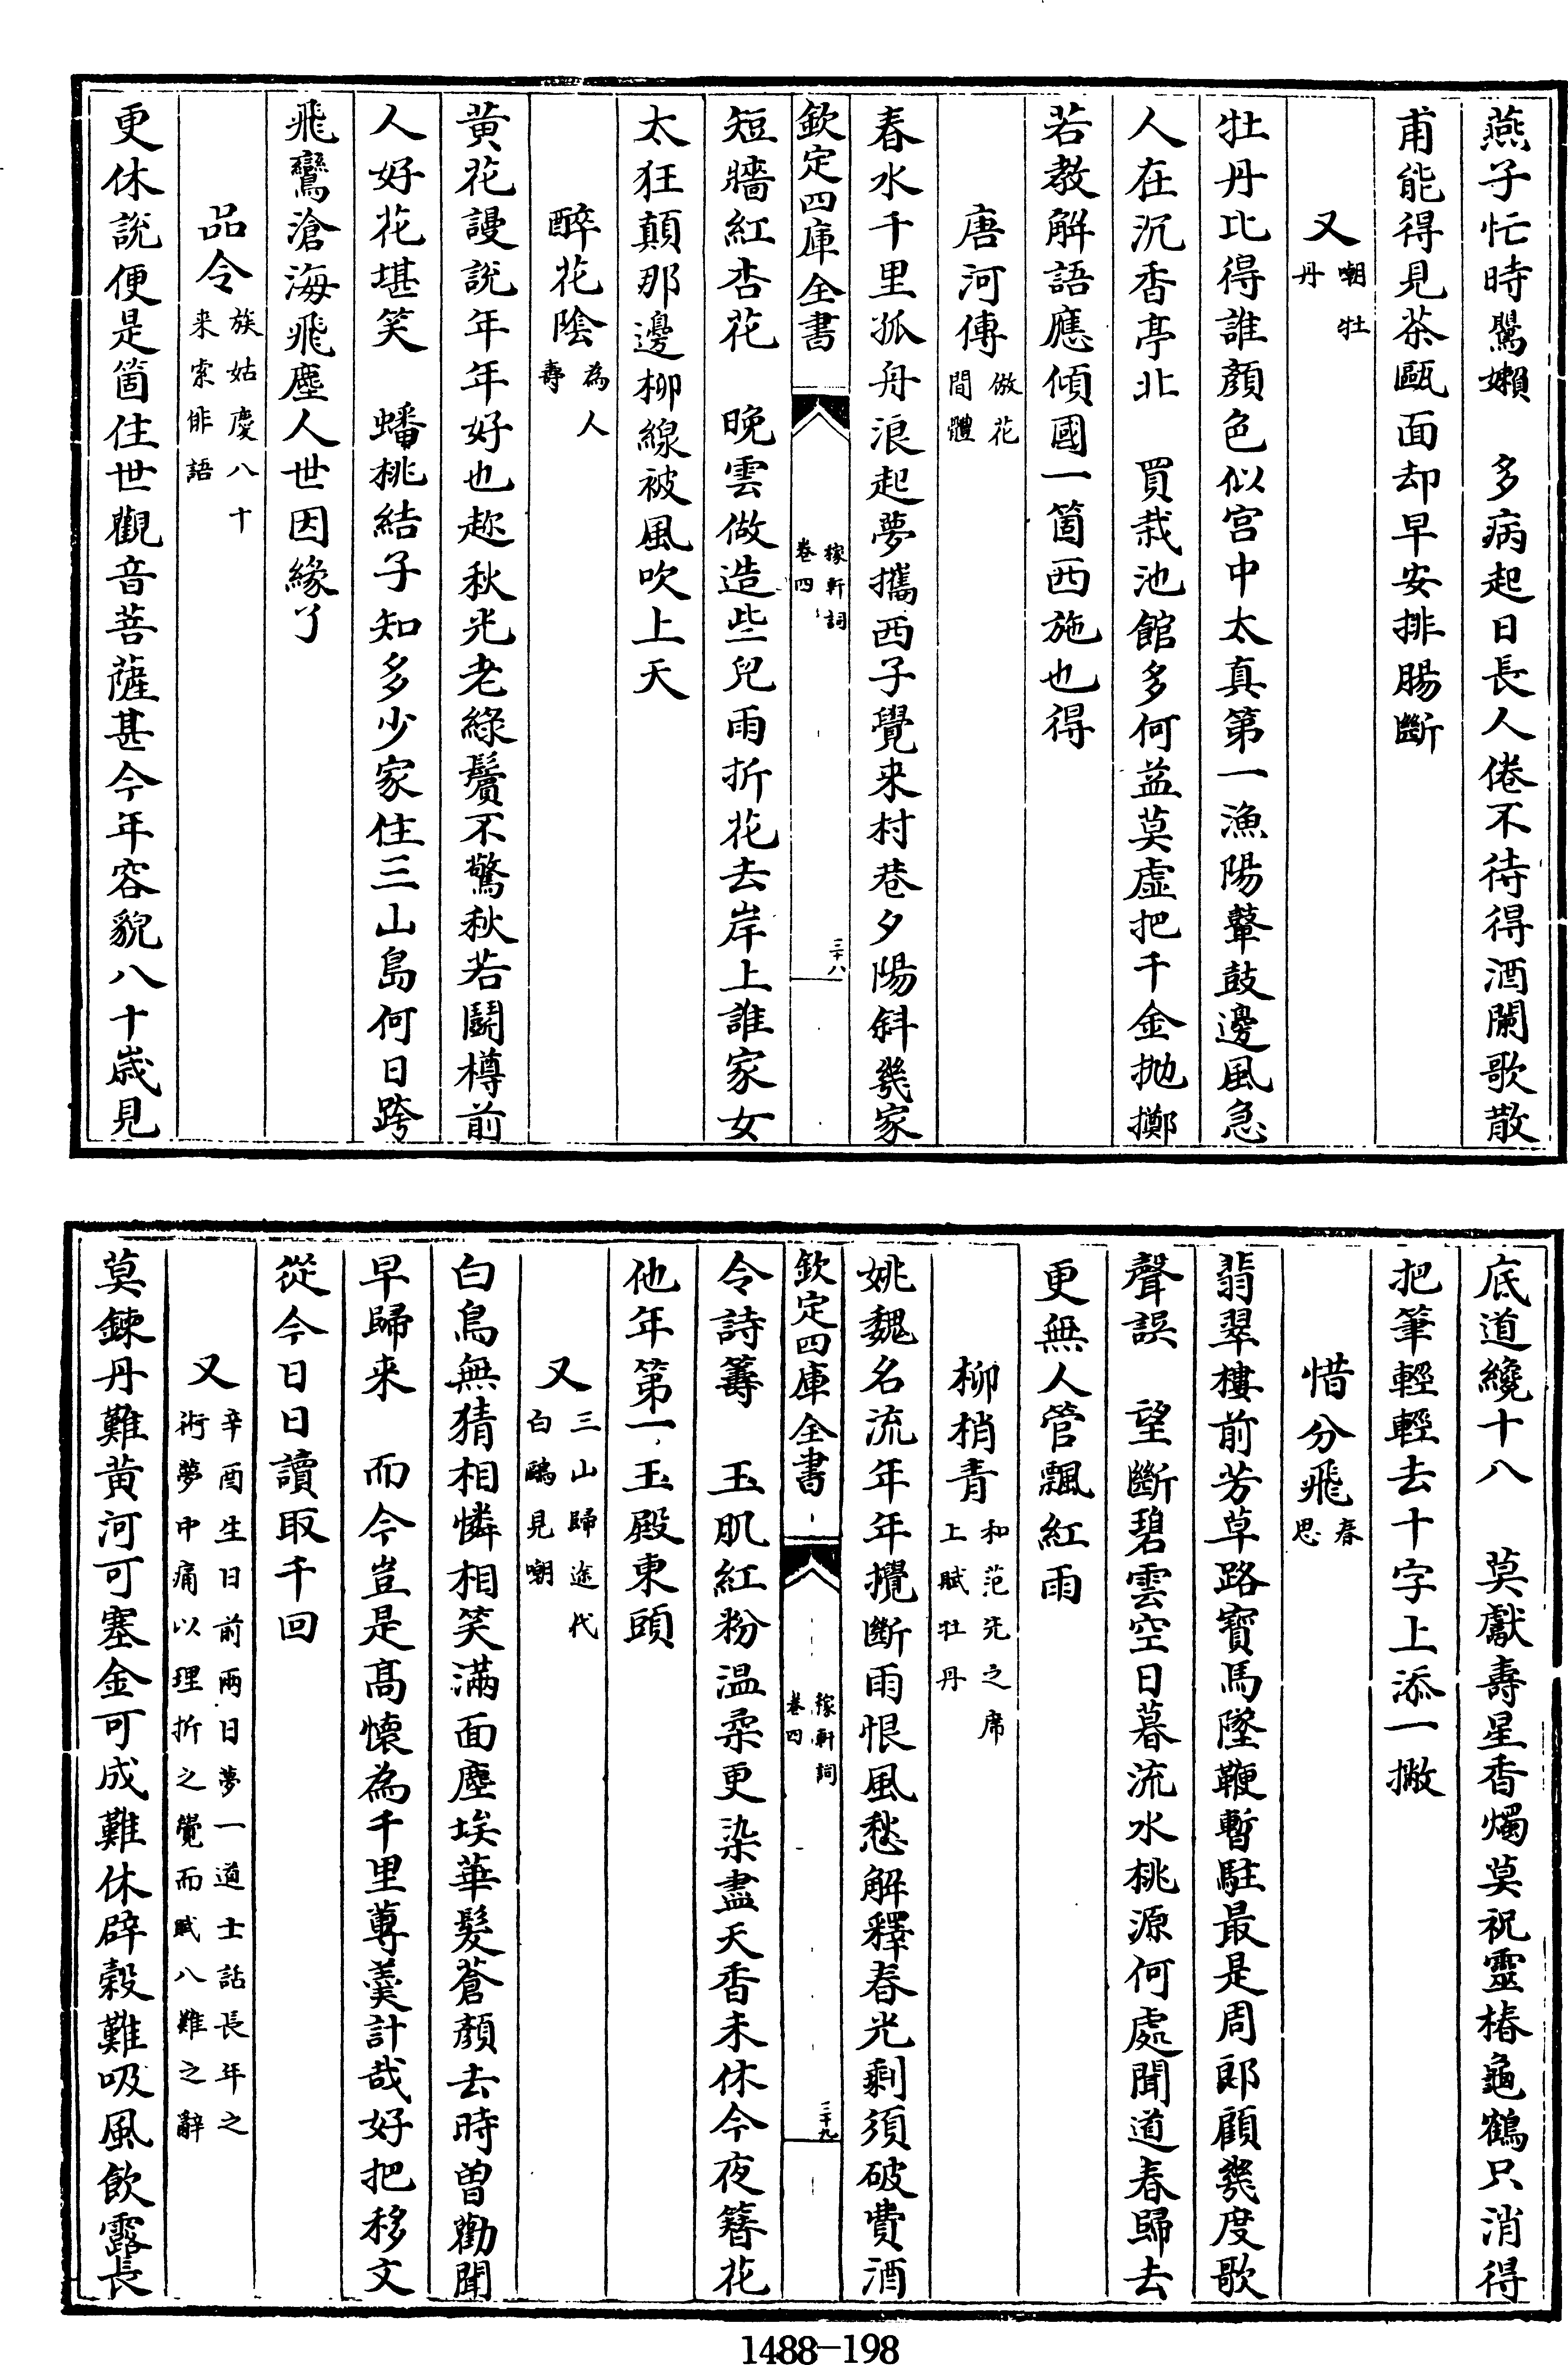 燕子忙時鶯嬾　多病起日長人倦不待得酒闌歌散
甫能得見茶甌面却早安排腸斷
又嘲牡丹
牡丹比得誰顔色似宫中太真第一漁陽鼙鼓邊風急
人在沉香亭北　買栽池館多何益莫虛把千金抛擲
若教解語應傾國一箇西施也得
唐河傳倣花間體
春水千里孤舟浪起夢攜西子覺来村巷夕陽斜幾家
欽定四庫全書　稼軒詞卷四　三十八
短牆紅杏花　晚雲做造些兒雨折花去岸上誰家女
太狂顛那邊柳線被風吹上天
醉花隂為人壽
黄花謾說年年好也趂秋光老綠鬢不驚秋若鬭樽前
人好花堪笑　蟠桃結子知多少家住三山島何日跨
飛鸞滄海飛塵人世因緣了
品令族姑慶八十来索俳語
更休說便是箇住世觀音菩薩甚今年容貌八十歲見
底道纔十八　莫獻壽星香燭莫祝靈椿龜鶴只消得
把筆輕輕去十字上添一撇
惜分飛春思
翡翠樓前芳草路寶馬墜鞭暫駐最是周郎顧幾度歌
聲誤　望斷碧雲空日暮流水桃源何處聞道春歸去
更無人管飄紅雨
柳梢青和范先之席上賦牡丹
姚魏名流年年攬斷雨恨風愁解釋春光剩須破費酒
欽定四庫全書　稼軒詞卷四　三十九
令詩籌　玉肌紅粉温柔更染盡天香未休今夜簪花
他年第一玉殿東頭
又三山歸途代白鷗見嘲
白鳥無猜相憐相笑滿面塵埃華髮蒼顏去時曾勸聞
早歸来　而今豈是高懷為千里蓴羹計哉好把移文
從今日日讀取千回
又辛酉生日前兩日夢一道士話長年之術夢中痛以理折之覺而賦八難之辭
莫鍊丹難黄河可塞金可成難休辟榖難吸風飲露長
1488-198